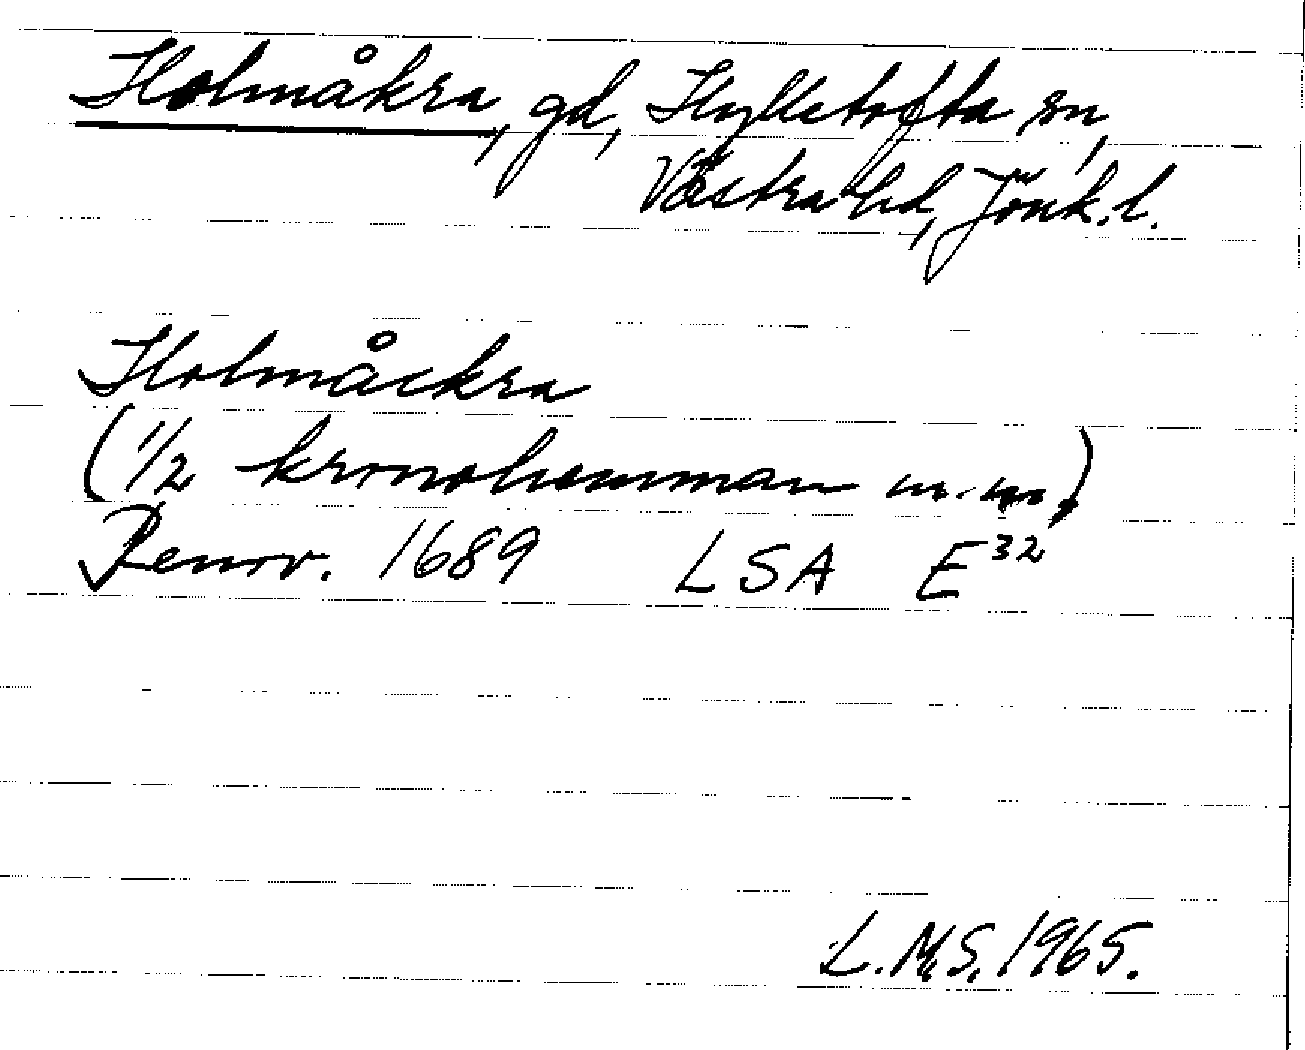 Holmåkra, gd, Hylletofta sn,
Västra hd, Jönk.l.
Holmåckra
(1/2 kronohemman m.m.)
Renov. 1689 LSA E32
L.M.S. 1965.